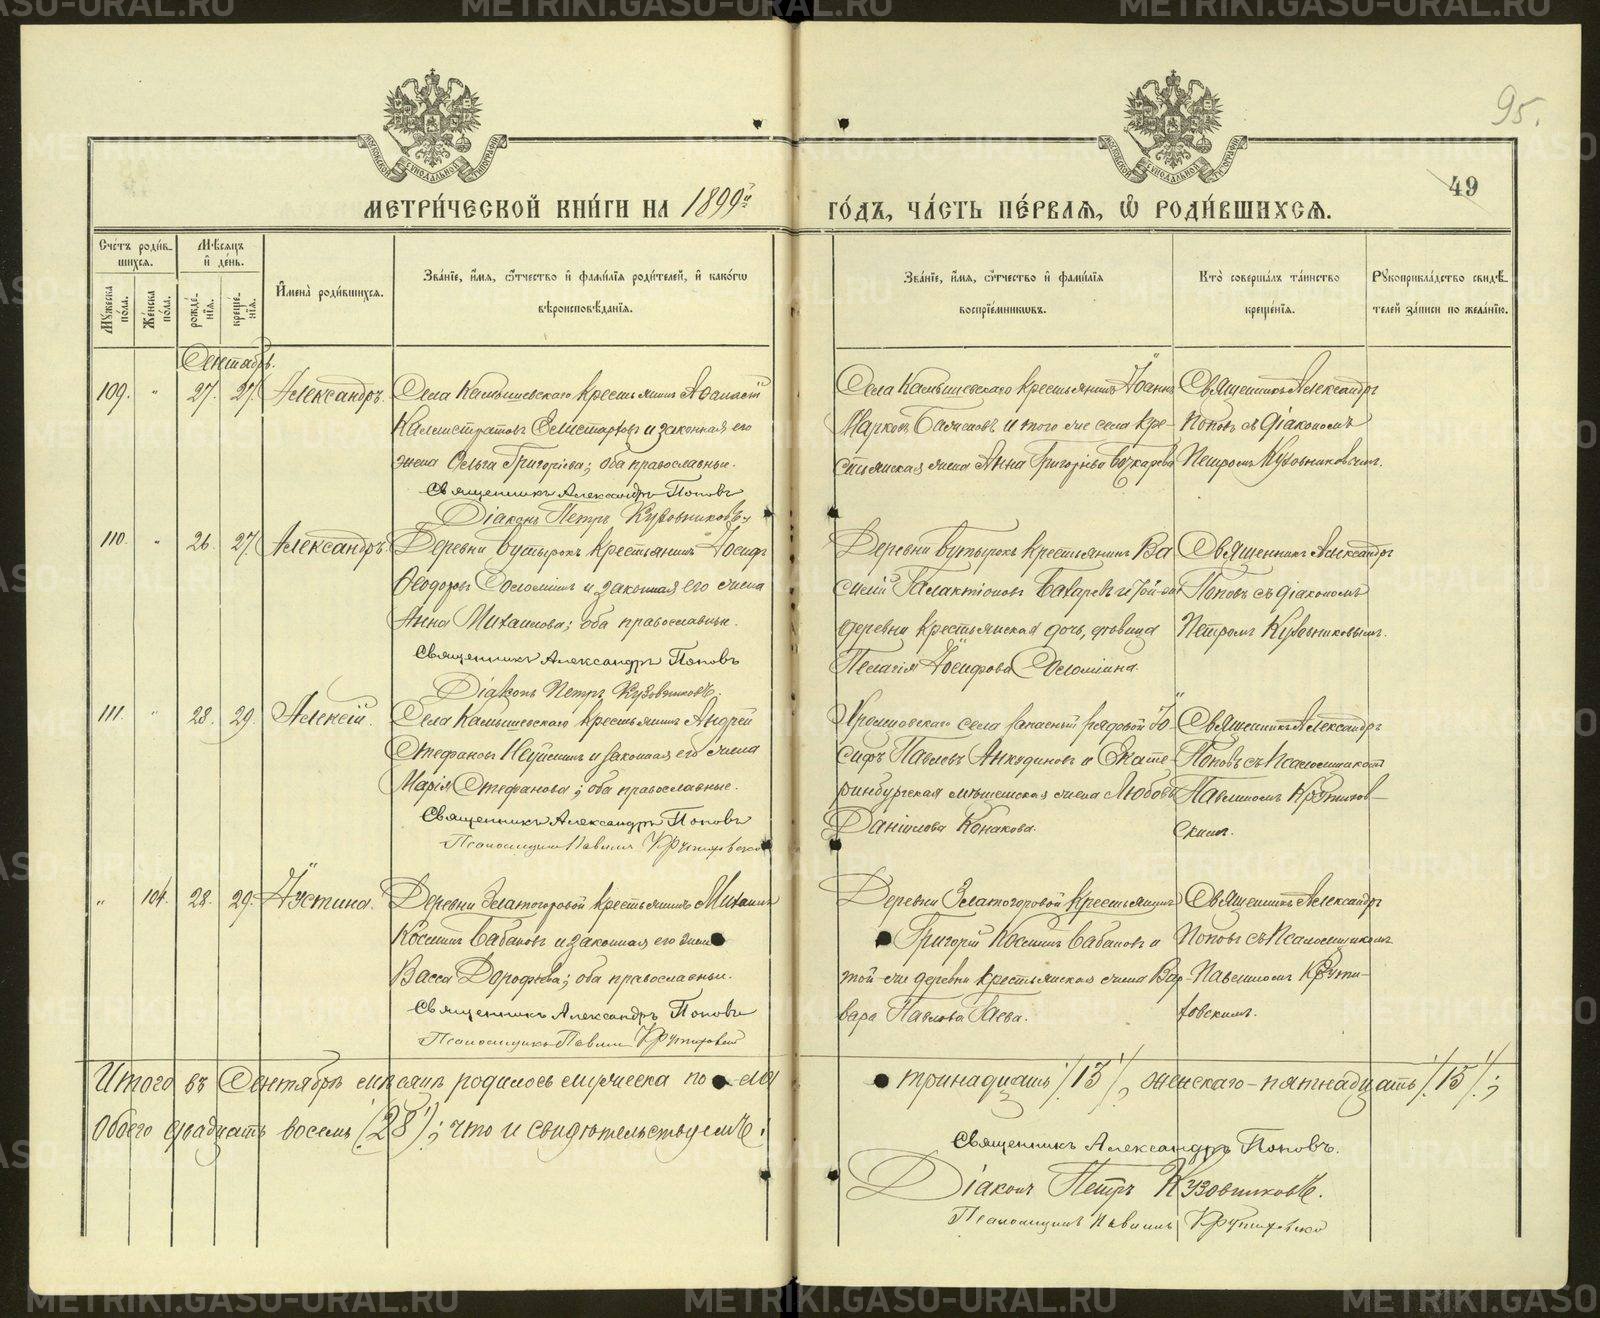 METRIKI.GASO-URAL.RU
95.
49
МЕТРИ́ЧЕСКОЙ КНИ́ГИ НА 1899й
ГО́ДЪ, ЧА́СТЬ ПЕ́РВАЯ, Ѡ РОДИ́ВШИХСЯ.
Сче́тъ роди́в-
шихся.
Му́жеска по́ла.
Же́нска по́ла.
Мѣ́сяцъ
и҆ де́нь.
рожде́-
нїя.
креще́-
нїя.
И҆мена̀ роди́вшихся.
Зва́нїе, и҆́мя, ѻ҆́тчество и҆ фами́лїя роди́телей, и҆ како́гѡ
вѣроисповѣ́данїя.
Зва́нїе, и҆́мя, ѻ҆́тчество и҆ фами́лїя
воспрїе́мникѡвъ.
Кто̀ соверша́лъ та́инство
креще́нїя.
Рꙋкоприкла́дство свидѣ́-
телей за́писи по жела́нїю.
Сентябрь.
109. " 27. 27. Александръ.
Села Камышевскаго крестьянинъ Аѳанасій
Каллистратовъ Селистарховъ и законная его
жена Ольга Григоріева; оба православные.
Священникъ Александръ Поповъ
Діаконъ Петръ Кузовниковъ
Села Камышевскаго крестьянинъ Іоаннъ
Марковъ и того же села кре-
стьянская жена Анна Григоріева Бочкарева
Священникъ Александръ
Поповъ съ діакономъ
Петромъ Кузовниковымъ.
110. " 26. 27. Александръ.
Деревни Бутырокъ крестьянинъ Іосифъ
Ѳеодоровъ Соломинъ и законная его жена
Анна Михаилова; оба православные.
Священникъ Александръ Поповъ
Діаконъ Петръ Кузовниковъ.
Деревни Бутырокъ крестьянинъ Ва-
силій Галактіоновъ Бахаревъ и той-же
деревни крестьянская дочь, дѣвица
Пелагія Іосифова Соломина.
Священникъ Александръ
Поповъ съ діакономъ
Петромъ Кузовниковымъ.
111. " 28. 29. Алексій.
Села Камышевскаго крестьянинъ Андрей
Стефановъ и законная его жена
Марія Стефанова; оба православные.
Священникъ Александръ Поповъ
Псаломщикъ Павлинъ Крутиховскій
села запасный рядовой Іо-
сифъ Павловъ Анкудиновъ и Екате-
ринбургская мѣщанская жена Любовь
Даніилова Конакова.
Священникъ Александръ
Поповъ съ Псаломщикомъ
Павлиномъ Крутихов-
скимъ.
" 104. 28. 29. Іустина.
Деревни Златогоровой крестьянинъ Михаилъ
Косминъ Бабановъ и законная его жена
Васса Дорофеева; оба православные.
Священникъ Александръ Поповъ
Псаломщикъ Павлинъ Крутиховскій
Деревни Златогоровой крестьянинъ
Григорій Косминъ Бабановъ и
той-же деревни крестьянская жена Вар-
вара Павлова Гаева.
Священникъ Александръ
Поповъ съ Псаломщикомъ
Павлиномъ Крути-
ховскимъ.
Итого въ Сентябрѣ мѣсяцѣ родилось мужеска по-ла тринадцать /13/, женскаго-пятнадцать /15/;
Обоего двадцать восемь (28); что и свидѣтельствуемъ:
Священникъ Александръ Поповъ.
Діаконъ Петръ Кузовниковъ.
Псаломщикъ Павлинъ Крутиховскій